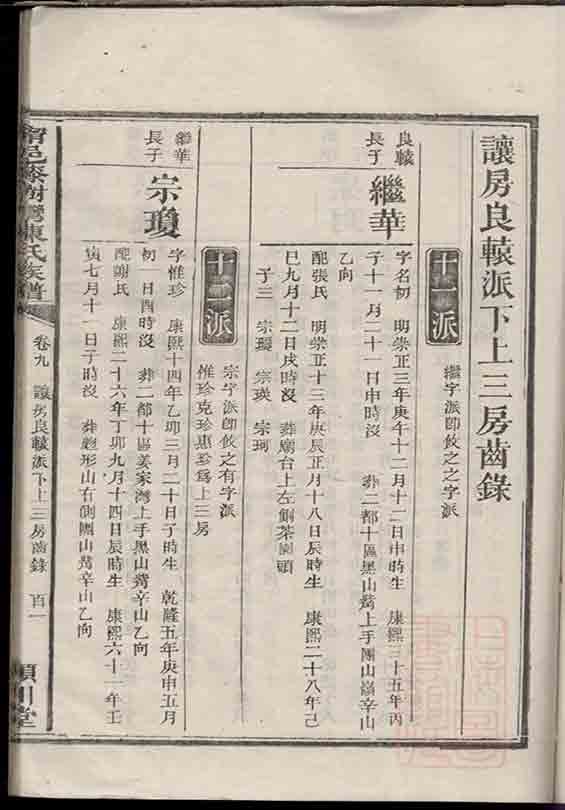 讓房良轅派下上三房齒錄
十一派
繼字派卽餃之之字派
良轅長子
繼華
字名初 明崇正三年庚午十二月十二日申時生 康熙三十五年丙
子十一月二十一日申時沒 葬二都十區黑山嵩上手團山嵩辛山
乙向
配張氏 明崇正十三年庚辰正月十八日辰時生 康熙二十八年己
巳九月十二日戌時沒 葬廟台上左側茶園頭
子三 宗瓊 宗瑛 宗珂
十二派
宗字派卽餃之有字派
惟珍克珍惠珍爲上三房
繼華長子
宗瓊
字惟珍 康熙十四年乙卯三月二十日子時生 乾隆五年庚申五月
初一日酉時沒 葬二都十區姜家灣上手黑山嵩辛山乙向
配謝氏 康熙二十六年丁卯九月十四日辰時生 康熙六十一年壬
寅七月十一日子時沒 葬彪形山右側團山嵩辛山乙向
甯邑 樹灣陳氏族譜
卷九 讓房良轅派下上三房齒錄 百一
潁川堂